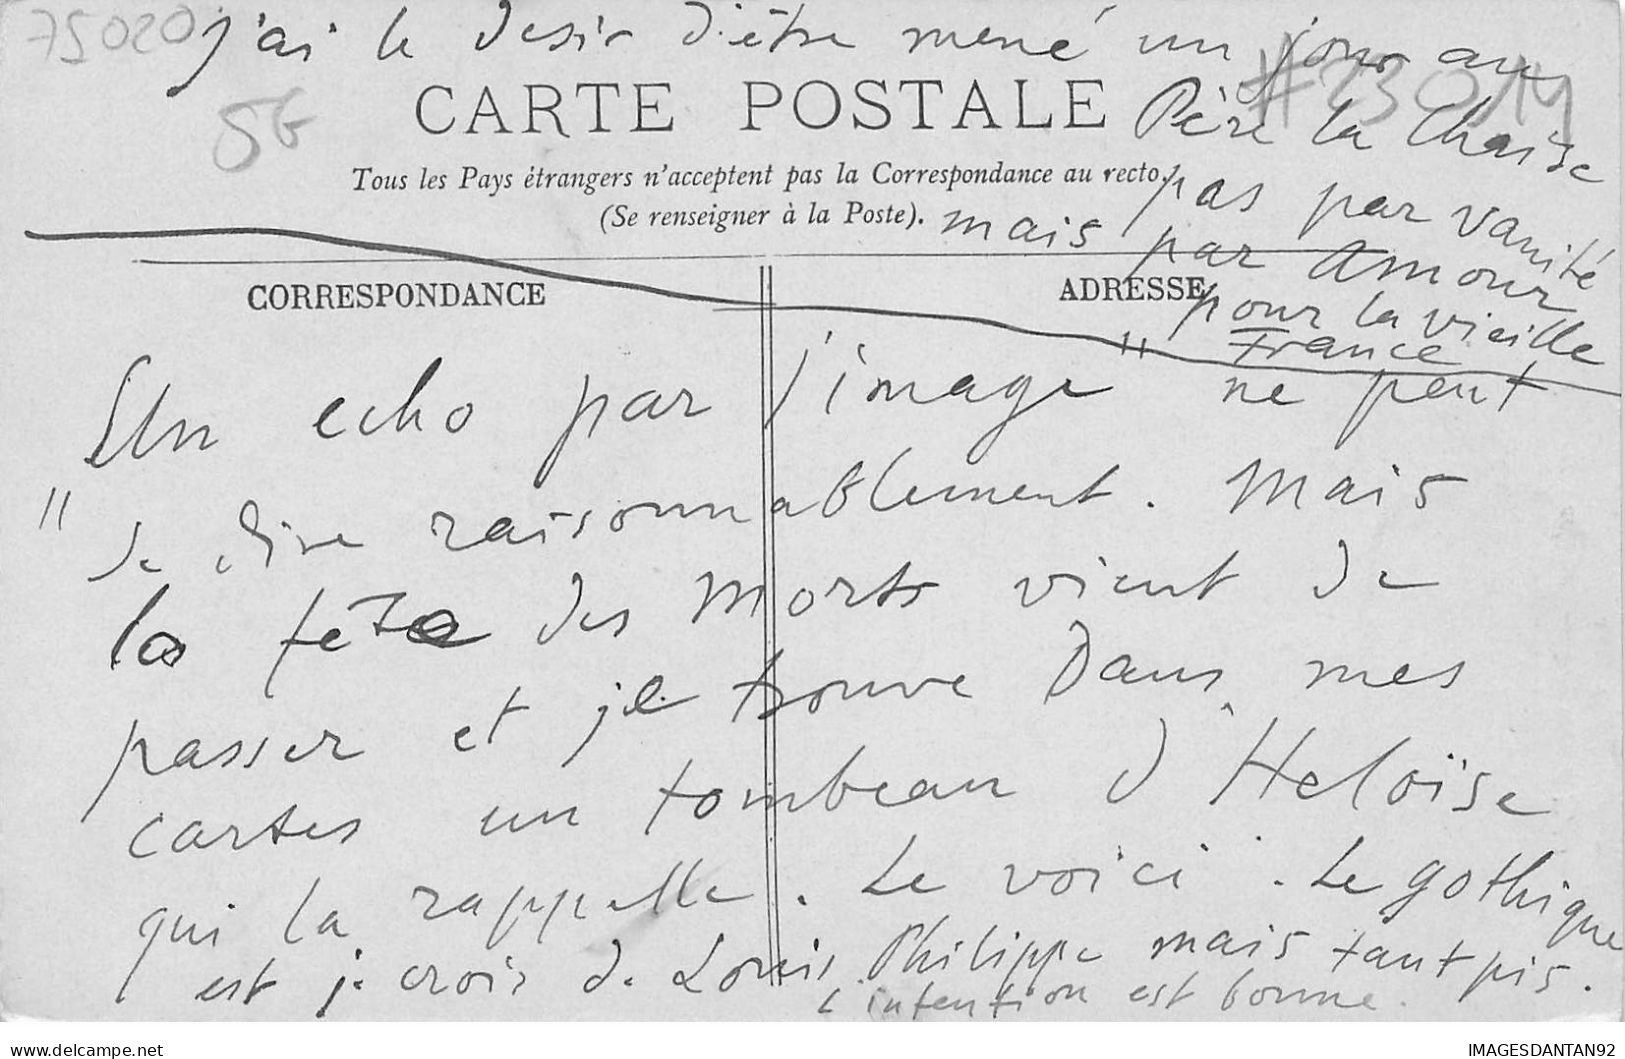 75020
j'ai le desir d'être mené un jour au
#23014
SG
CARTE POSTALE
Père la Chaise
Tous les Pays étrangers n'acceptent pas la Correspondance au recto.
pas par vanité
(Se renseigner à la Poste).
mais par amour
pour la vieille
France
CORRESPONDANCE
ADRESSE
Un "echo par l'image" ne peut
se dire raisonnablement. Mais
la fête des Morts vient de
passer et je trouve dans mes
cartes un tombeau d'Heloïse
qui la rappelle. Le voici. Le gothique
est je crois de Louis Philippe mais tant pis.
L'intention est bonne.
delcampe.net
IMAGESDANTAN92